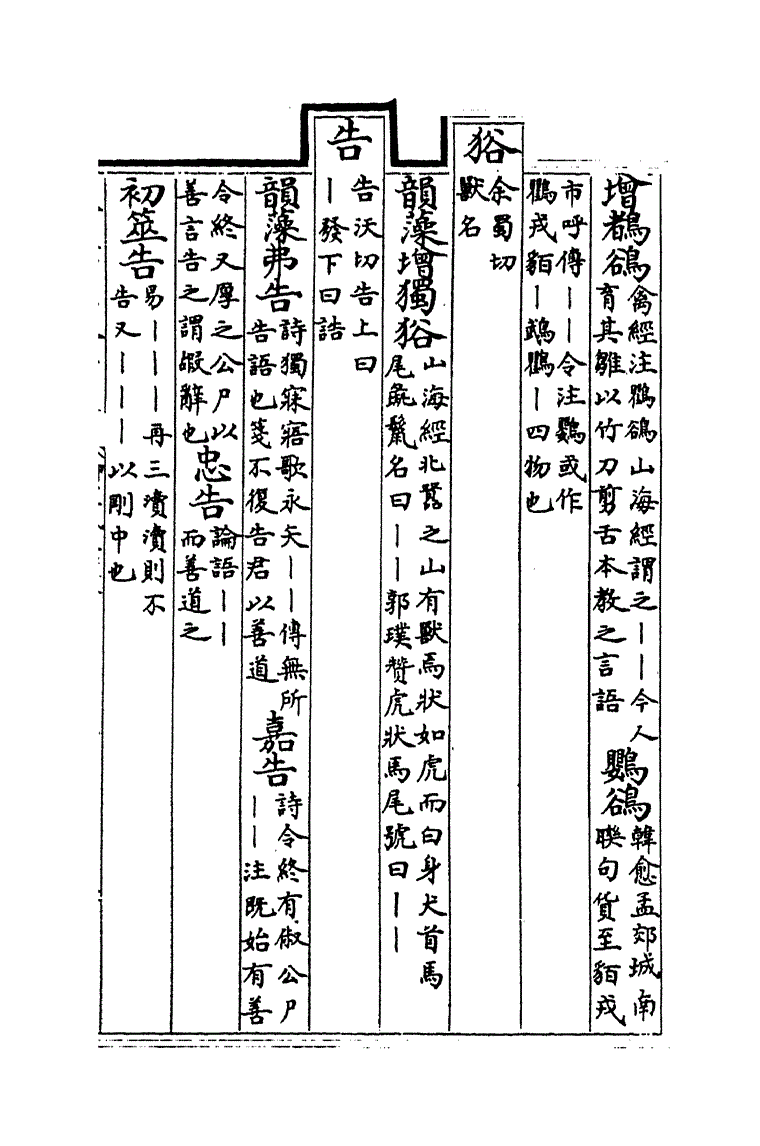 增鵡鵒禽經注鸜鵒山海經謂之｜｜今人育其雛以竹刀剪舌本教之言語鸚鵒韓愈孟郊城南聯句貨至貊戎
市呼傳｜｜令注鸚或作鸜戎貊｜鵡鸜｜四物也
㺄余蜀切獸名
韻藻增獨㺄山海經北嚻之山有獸焉狀如虎而白身犬首馬尾彘鬣名曰｜｜郭璞贊虎狀馬尾號曰｜｜
告告沃切告上曰｜發下曰誥
韻藻弗告詩獨寐寤歌永矢｜｜傳無所告語也箋不復告君以善道嘉告詩令終有俶公尸｜｜注既始有善
令終又厚之公尸以善言告之謂嘏辭也忠告論語｜｜而善道之
初筮告易｜｜｜再三瀆瀆則不告又｜｜｜以剛中也